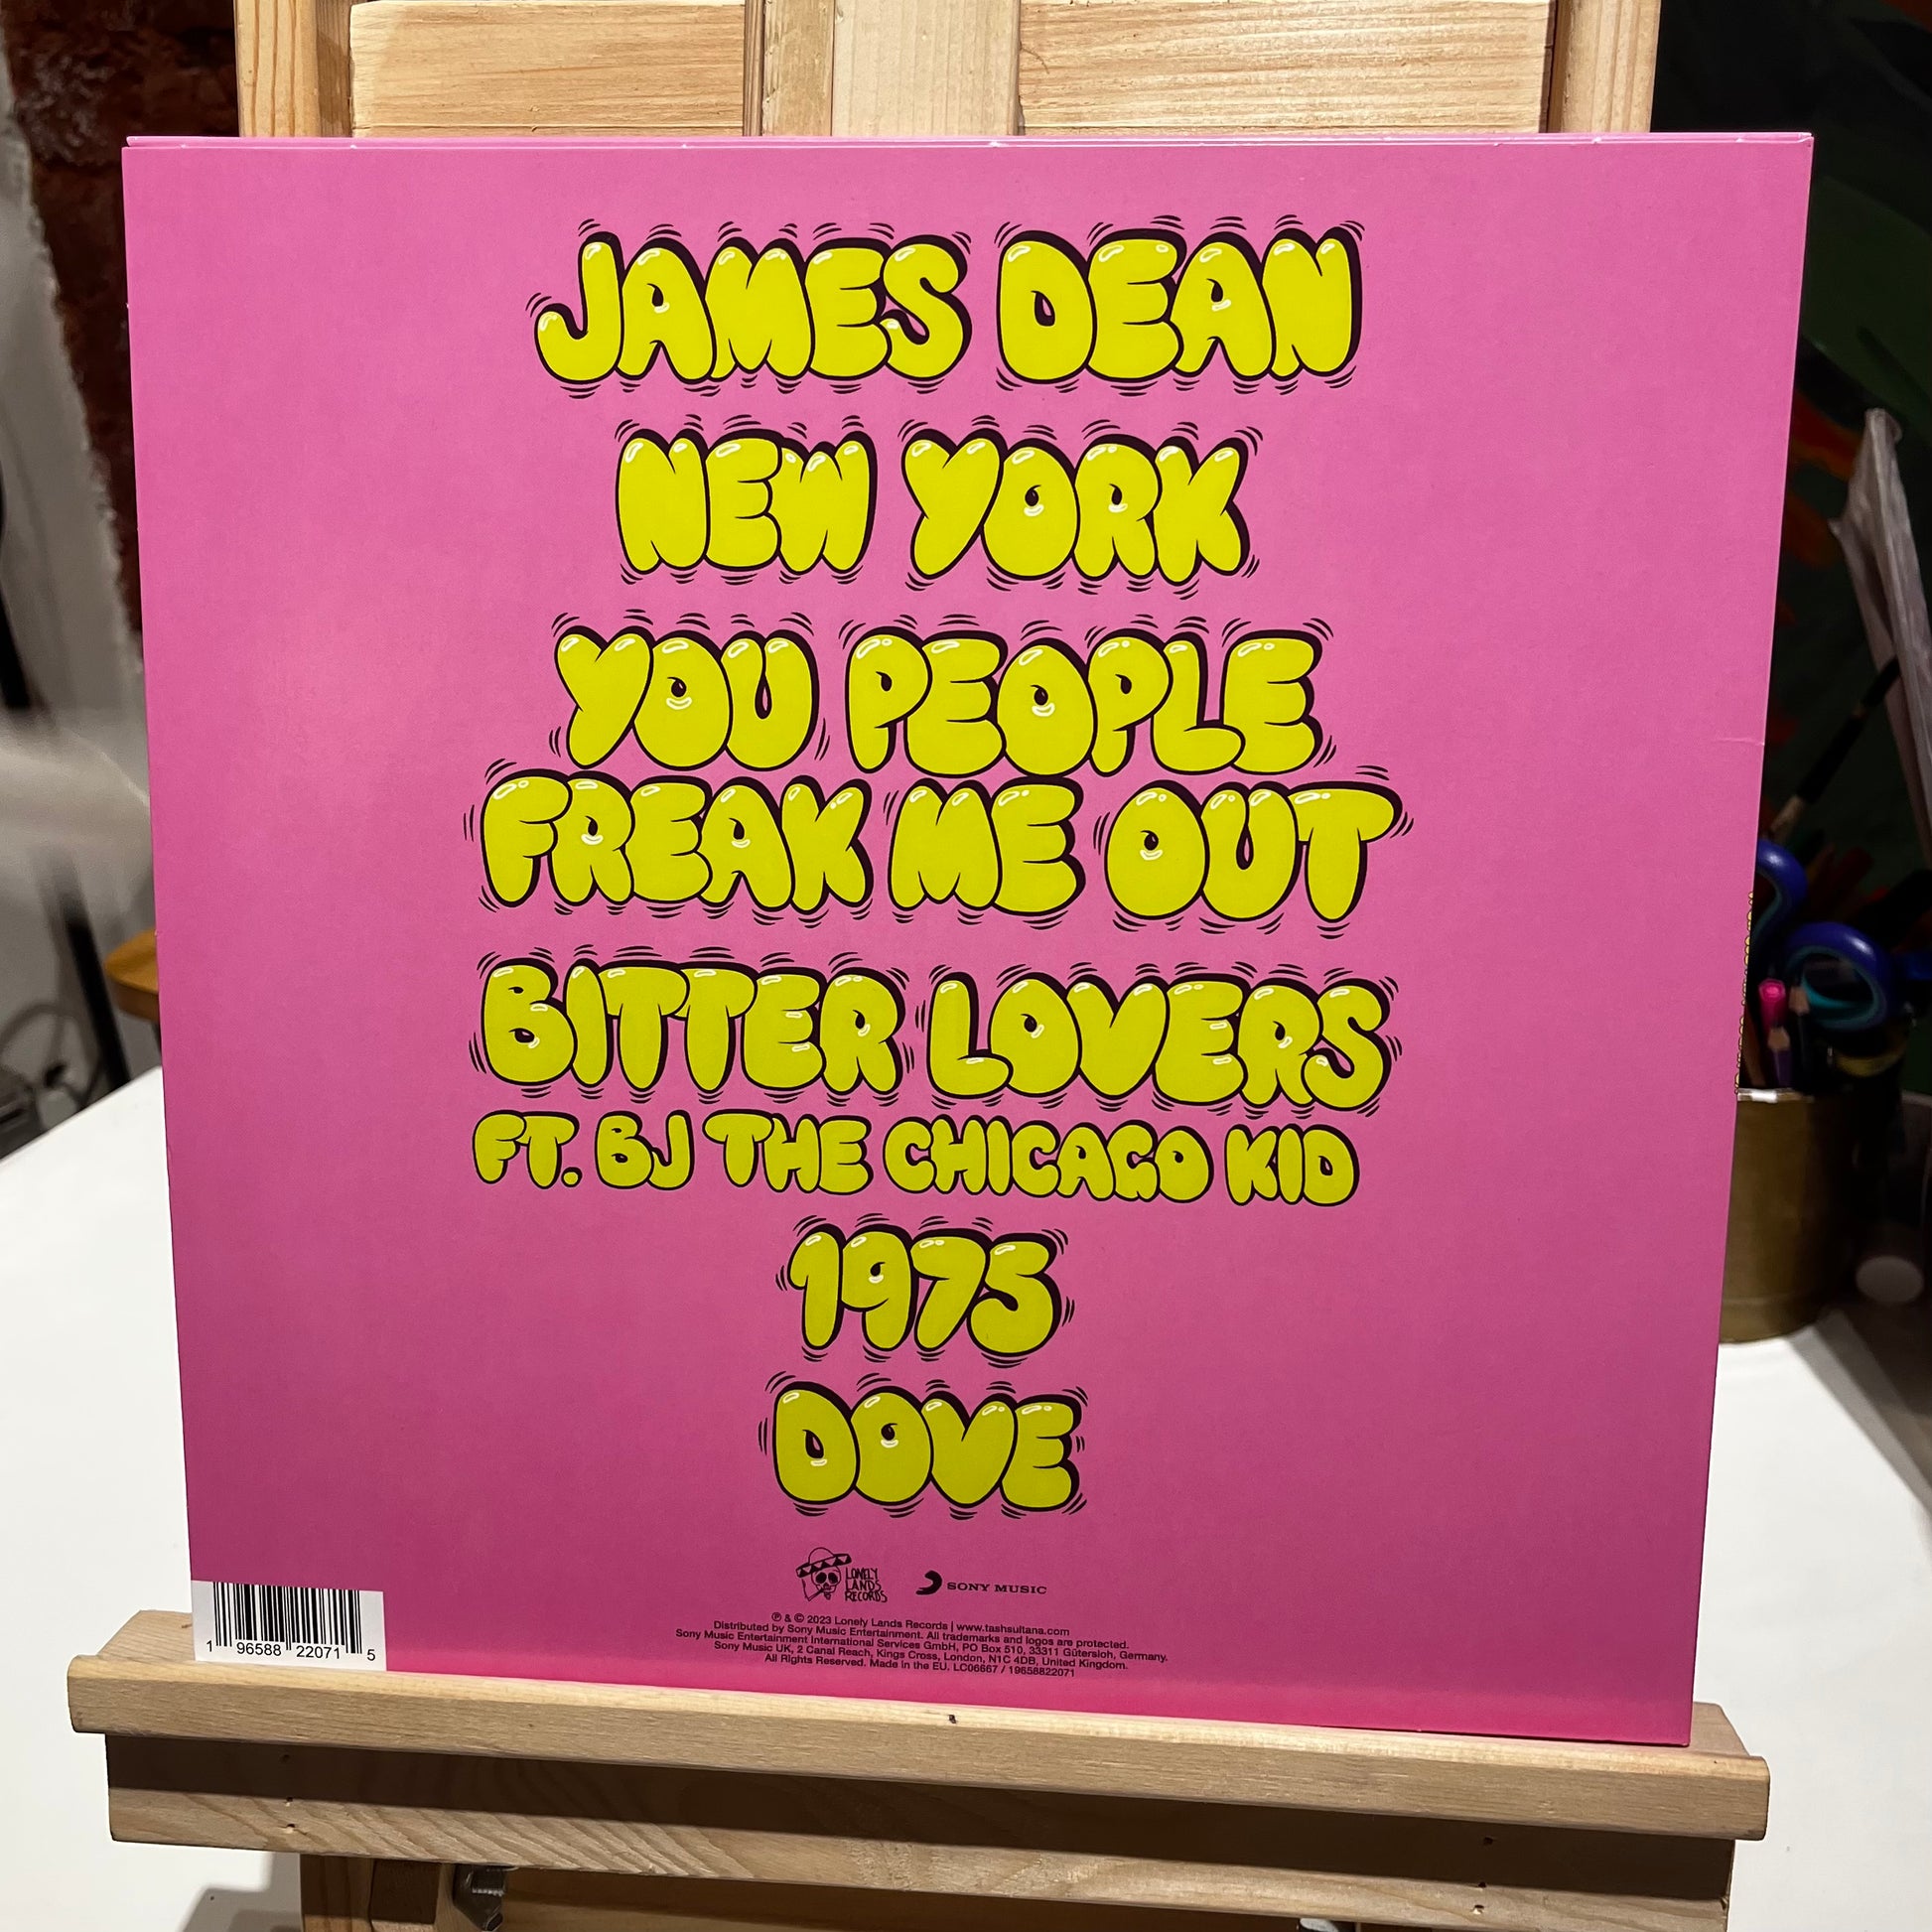 JAMES DEAN
NEW YORK
YOU PEOPLE
FREAK ME OUT
BITTER LOVERS
FT. BJ THE CHICAGO KID
1975
DOVE
LONELY
LANDS
RECORDS
SONY MUSIC
℗ & © 2023 Lonely Lands Records | www.tashsultana.com
Distributed by Sony Music Entertainment. All trademarks and logos are protected.
Sony Music Entertainment International Services GmbH, PO Box 510, 33311 Gütersloh, Germany.
Sony Music UK, 2 Canal Reach, Kings Cross, London, N1C 4DB, United Kingdom.
All Rights Reserved. Made in the EU. LC06667 / 19658822071
1 96588 22071 5